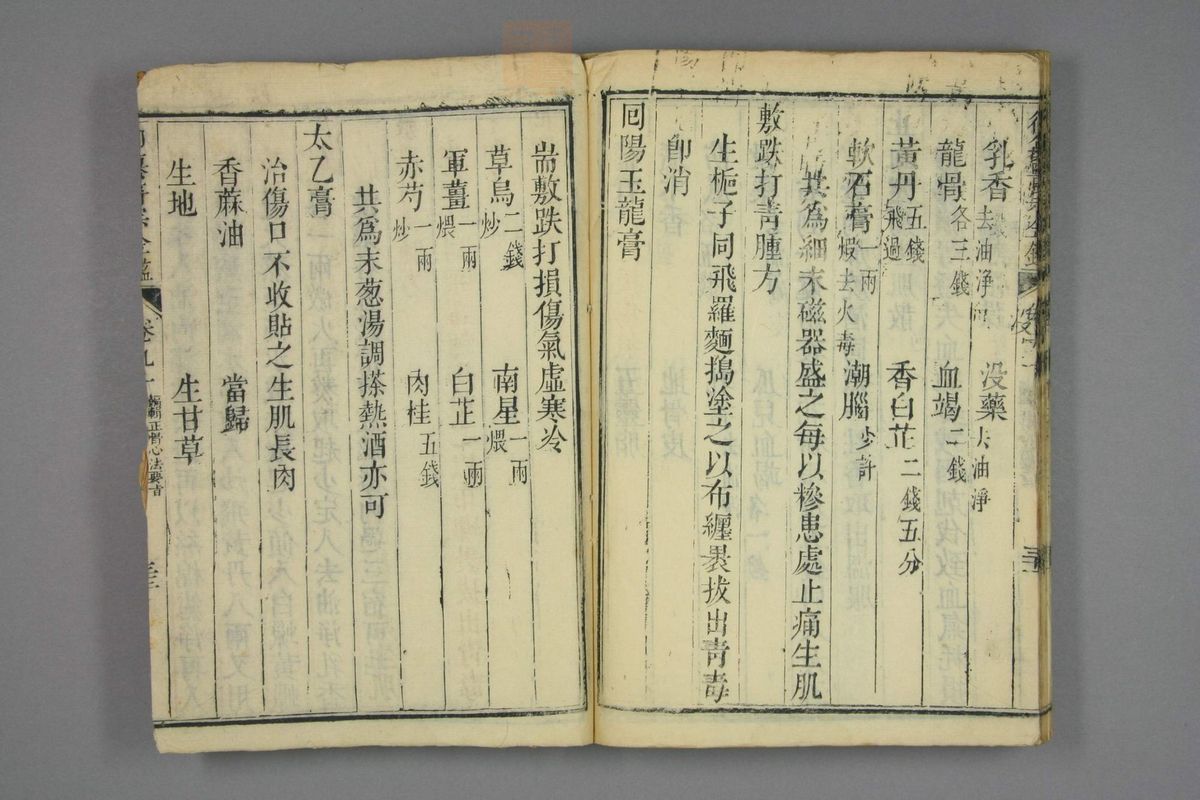 乳香去油淨 没藥去油淨
龍骨各三錢 血竭二錢
黃丹五錢飛過 香白芷二錢五分
軟石膏一兩煅去火毒 潮腦少許
共為細末磁器盛之每以糝患處止痛生肌
敷跌打青腫方
生梔子同飛羅麵搗塗之以布纏裹拔出青毒
卽消
囘陽玉龍膏
耑敷跌打損傷氣虛寒冷
草烏二錢炒 南星一兩煨
軍薑一兩煨 白芷一兩
赤芍一兩炒 肉桂五錢
共為末葱湯調搽熱酒亦可
太乙膏
治傷口不收貼之生肌長肉
香蔴油 當歸
生地 生甘草
宗金鑑 卷九十 編輯正骨心法要旨 三三